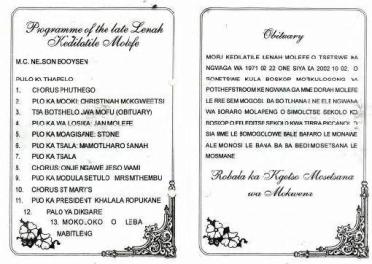 Programme of the late Lenah
Kedilatile Molefe
M.C. NELSON BOOYSEN
PULO KA THAPELO
1. CHORUS PHUTHEGO
2. PUO KA MOOKI: CHRISTINAH MOKGWEETSI
3. TSA BOTSHELO JWA MOFU (OBITUARY)
4. PUO KA WA LOSIKA: JAN MOLEFE
5. PUO KA MOAGISANE: STONE
6. PUO KA TSALA: MAMOTLHARO SANAH
7. PUO KA TSALA
8. CHORUS: ONJE NGAWE JESO WAMI
9. PUO KA MODULA SETULO
10. CHORUS ST MARY'S
11. PUO KA PRESIDENT KHALALA ROPUKANE
12. PALO YA DIKGARE
13. MOKOLOKO O LEBA
MABITLENG
Obituary
MOFU KEDILATILE LENAH MOLEFE O TSETSWE KA
NGWAGA WA 1971 02 22 ONE SIYA KA 2002 10 02. O
NE TSWE KULA BOSKOP
POTCHEFSTROOM KE NGWANA GA MME DORAH MOLEFE
LE RRE SEM MOGOSI. BA BOTLHANA E NE ELE NGWANA
WA BORARO MOLAPENG O SIMOLCTSE SEKOLO KO
BOSKOP
SIA MME LE BOMOGOLOWE BALE BAFARO LE MONANE
ALE MONOSI LE BANA BA BA BEDI MOSETSANA LE
MOSIMANE
Robala ka Kgotso Mosetsana
wa Mokwena